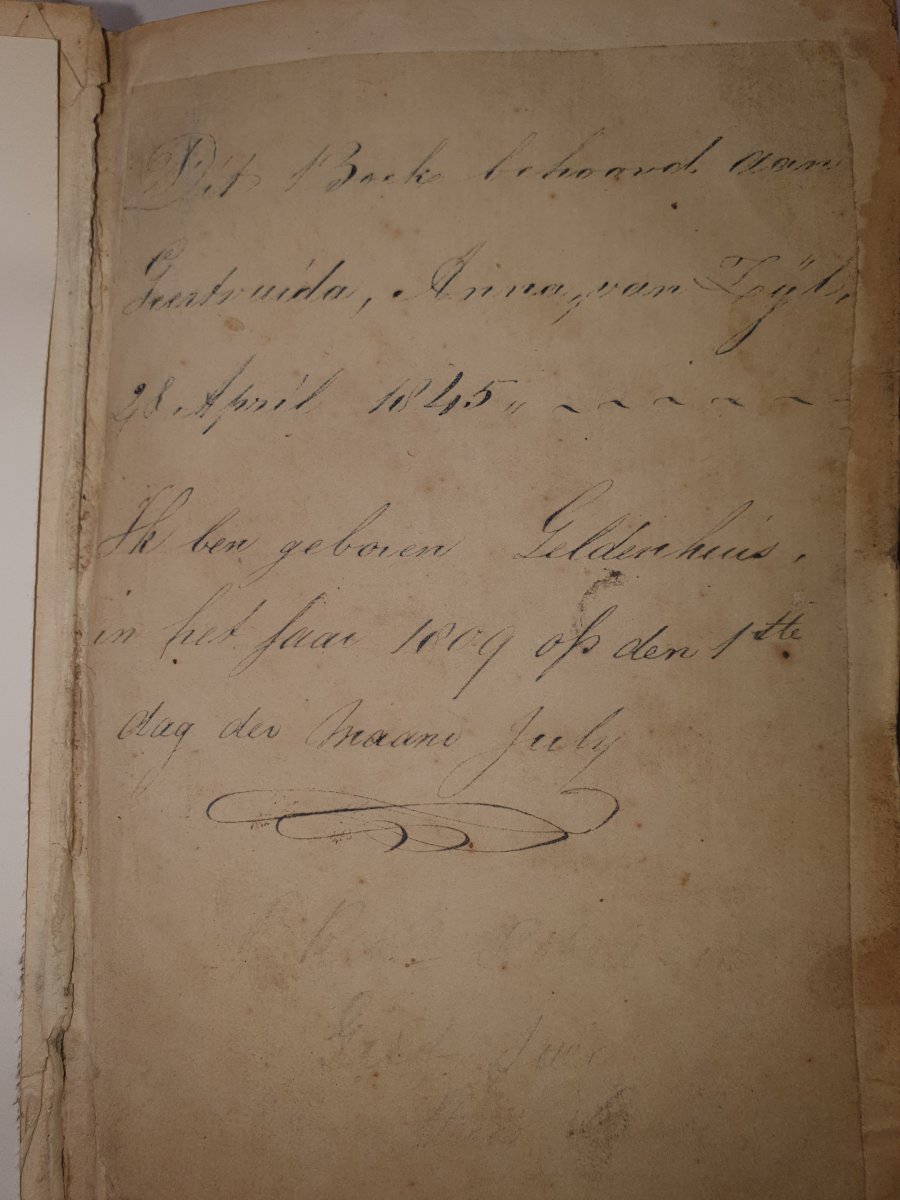 Dit Boek behoord aan
Geertruida, Anna, van Zÿl,
28 April 1845 „ ~ ~ ~ ~ ~ ~
Ik ben geboren Geldenhuis,
in het Jaar 1809 op den 1ste
dag der Maand July